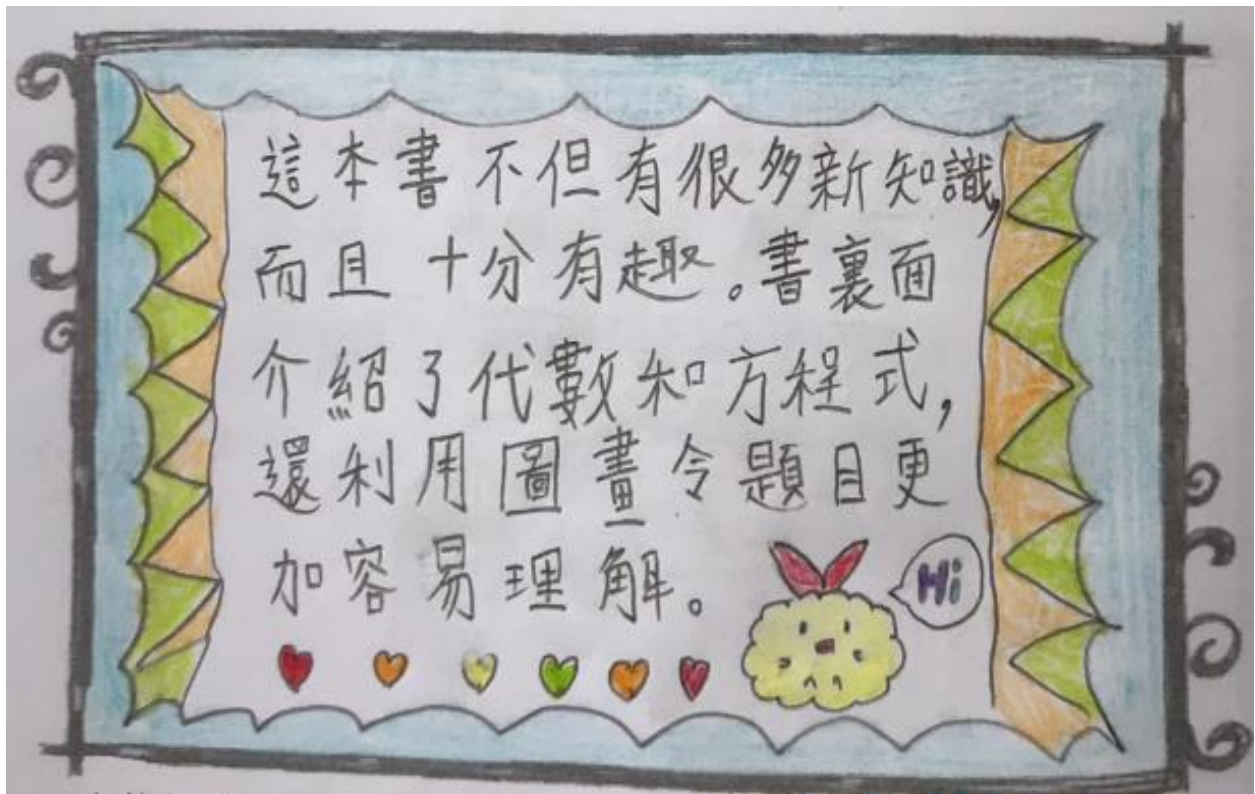 這本書不但有很多新知識,
而且十分有趣。書裏面
介紹了代數和方程式,
還利用圖畫令題目更
加容易理解。
Hi